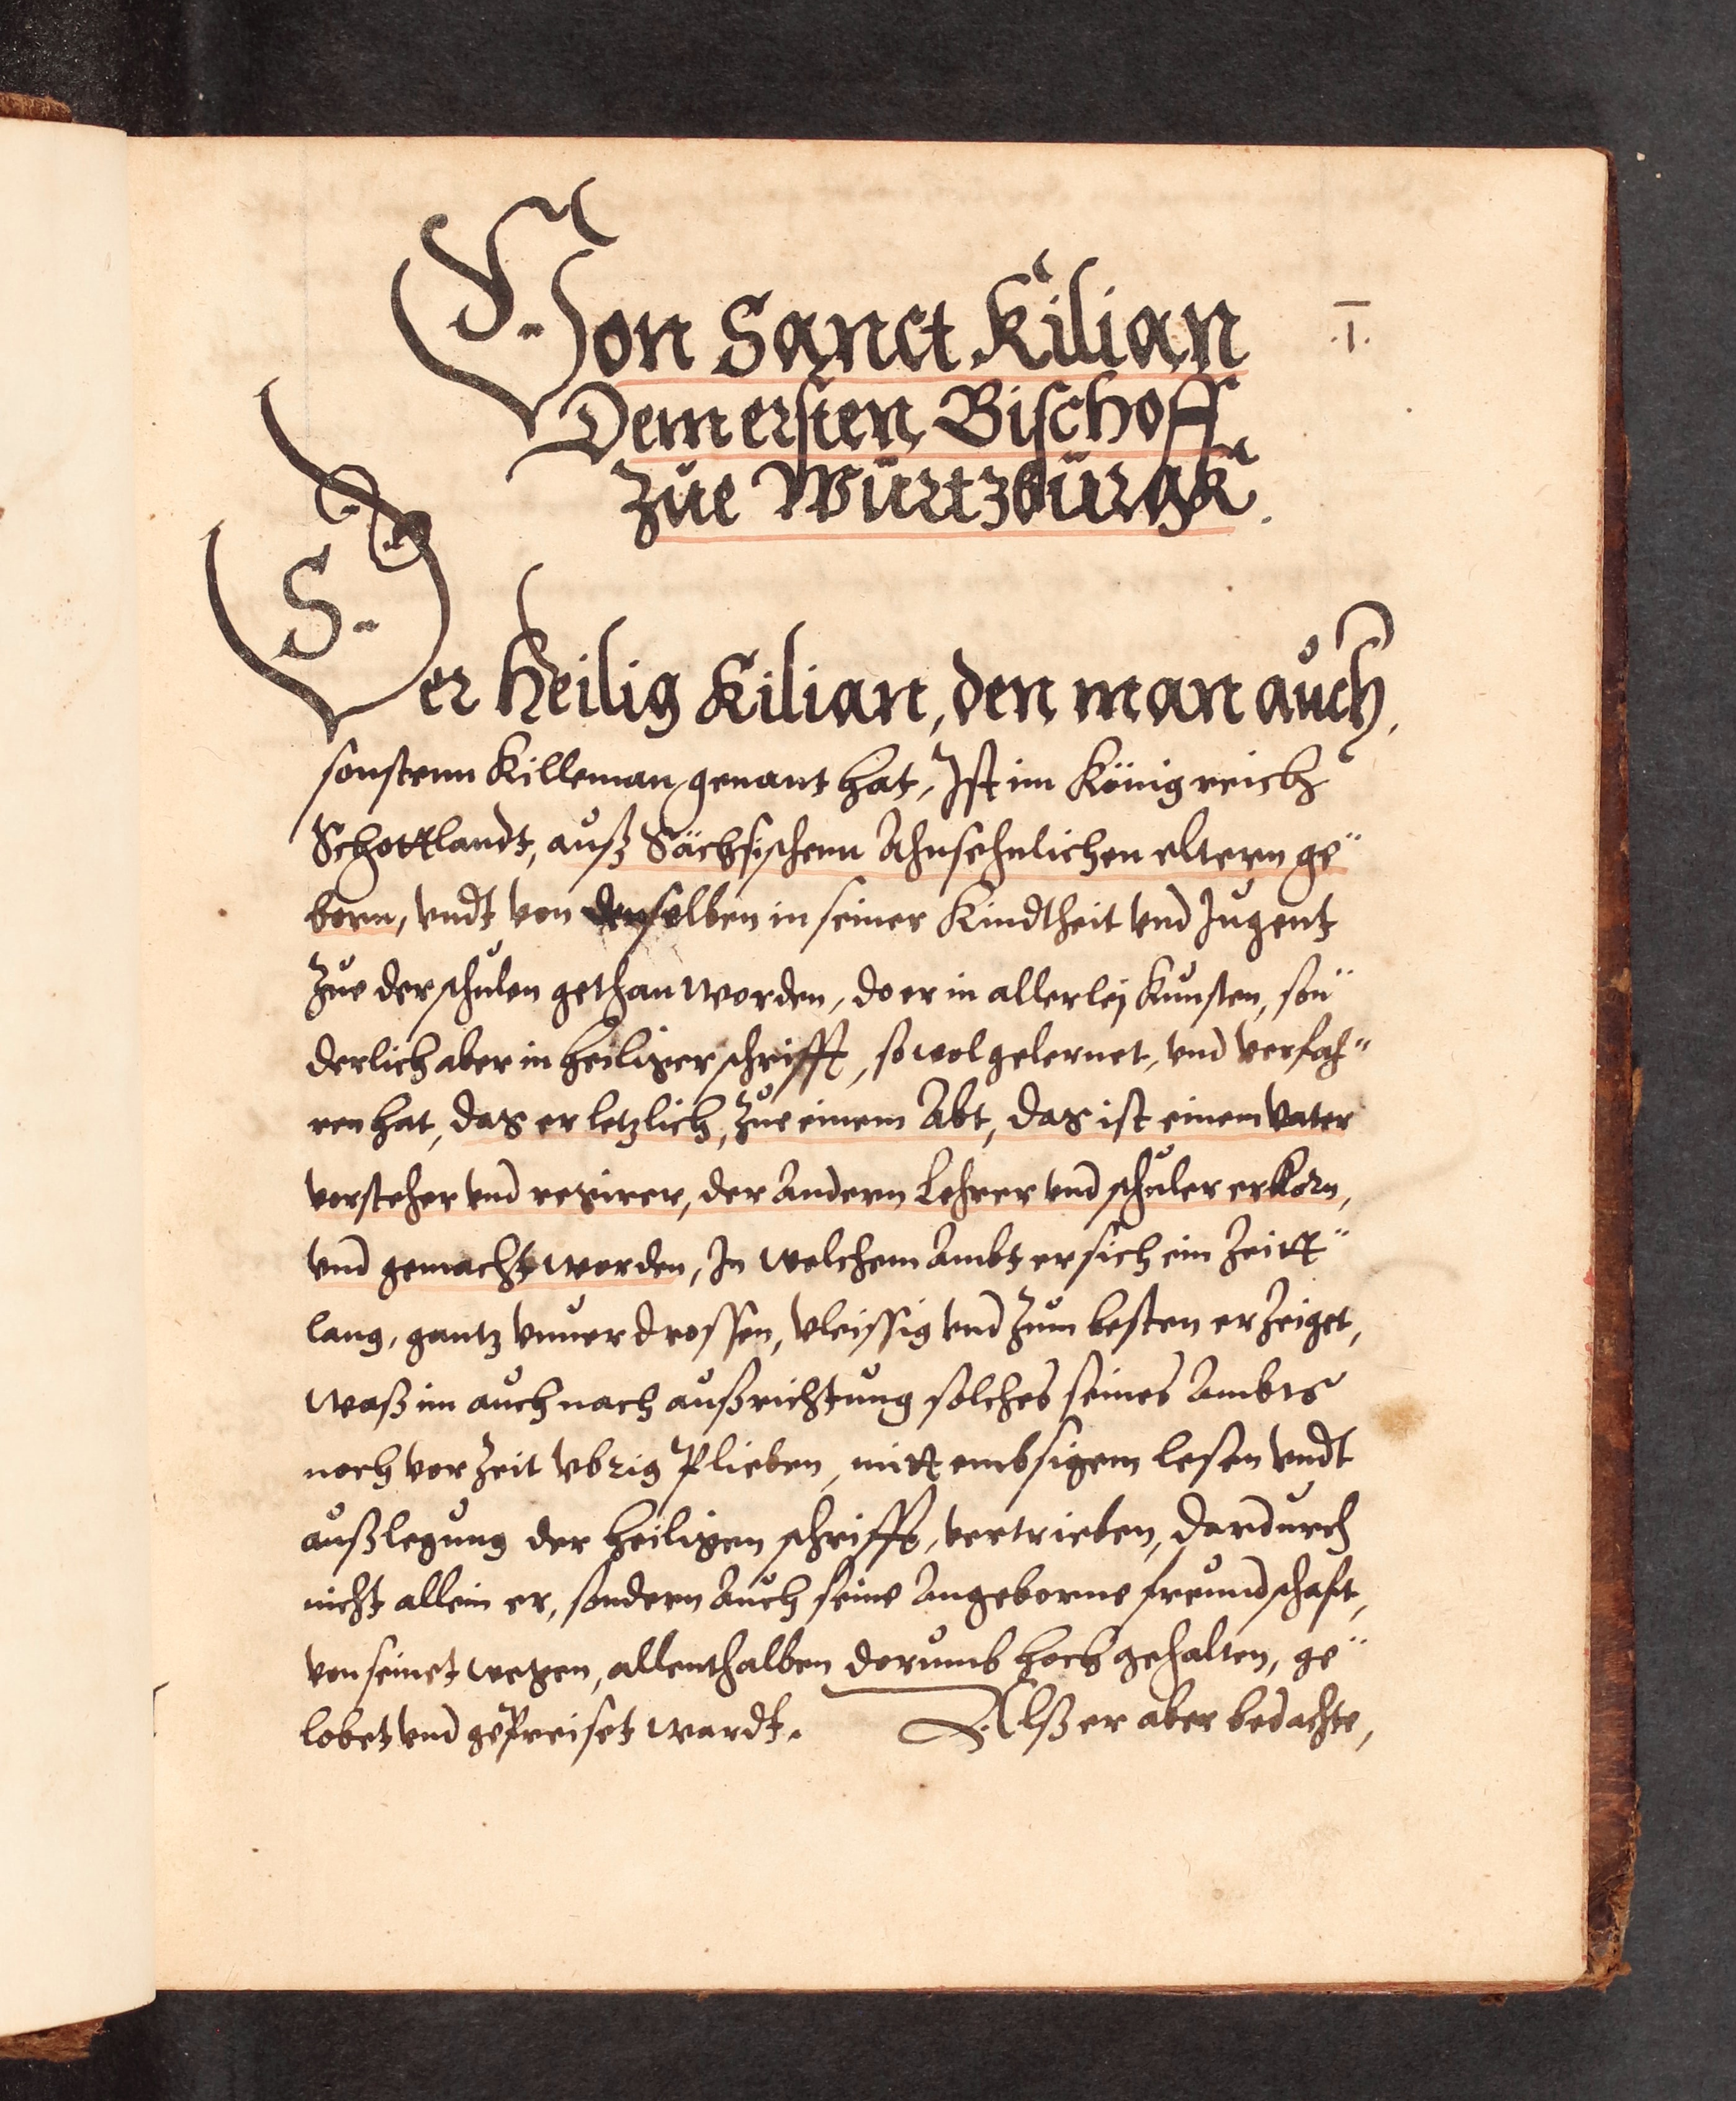 Von Sanct Kilian
.1.
Dem ersten Bischoff
Zue Würtzbürgk.
Der Heilig Kilian, den man auch,
sonstenn Killeman genant hat, Ist im Königreich
Schottlandt, auß Sächsischenn Ahnsehnlichen eltern ge¨
born, vndt von denselben in seiner Kindtheit vnd Jugent
Zue der schulen gethan worden, do er in allerlej Kunsten, son¨
derlich aber in heiliger schrifft, so wol gelernet, vnd verfah¨
ren hat, das er letzlich, Zue einem Abt, das ist einem Vater
vorsteher vnd regirer, der Andern Lehrer vnd schuler erkorn,
vnd gemacht worden, In welchem Ambt er sich ein Zeitt¨
lang, gantz vnuerdrossen, vleissig vnd Zum besten erZeiget,
waß im auch nach außrichtung solches seines Ambts
noch vor Zeit vbrig Plieben, mitt embsigem lesen vndt
außlegung der heiligen schrifft, vertrieben, dardurch
nicht allein er, sondern Auch seine Angeborne freundschaft,
von seinet wegen, allenthalben dorumb hoch gehalten, ge¨
lobet vnd gePreiset wardt. Alß er aber bedachte,